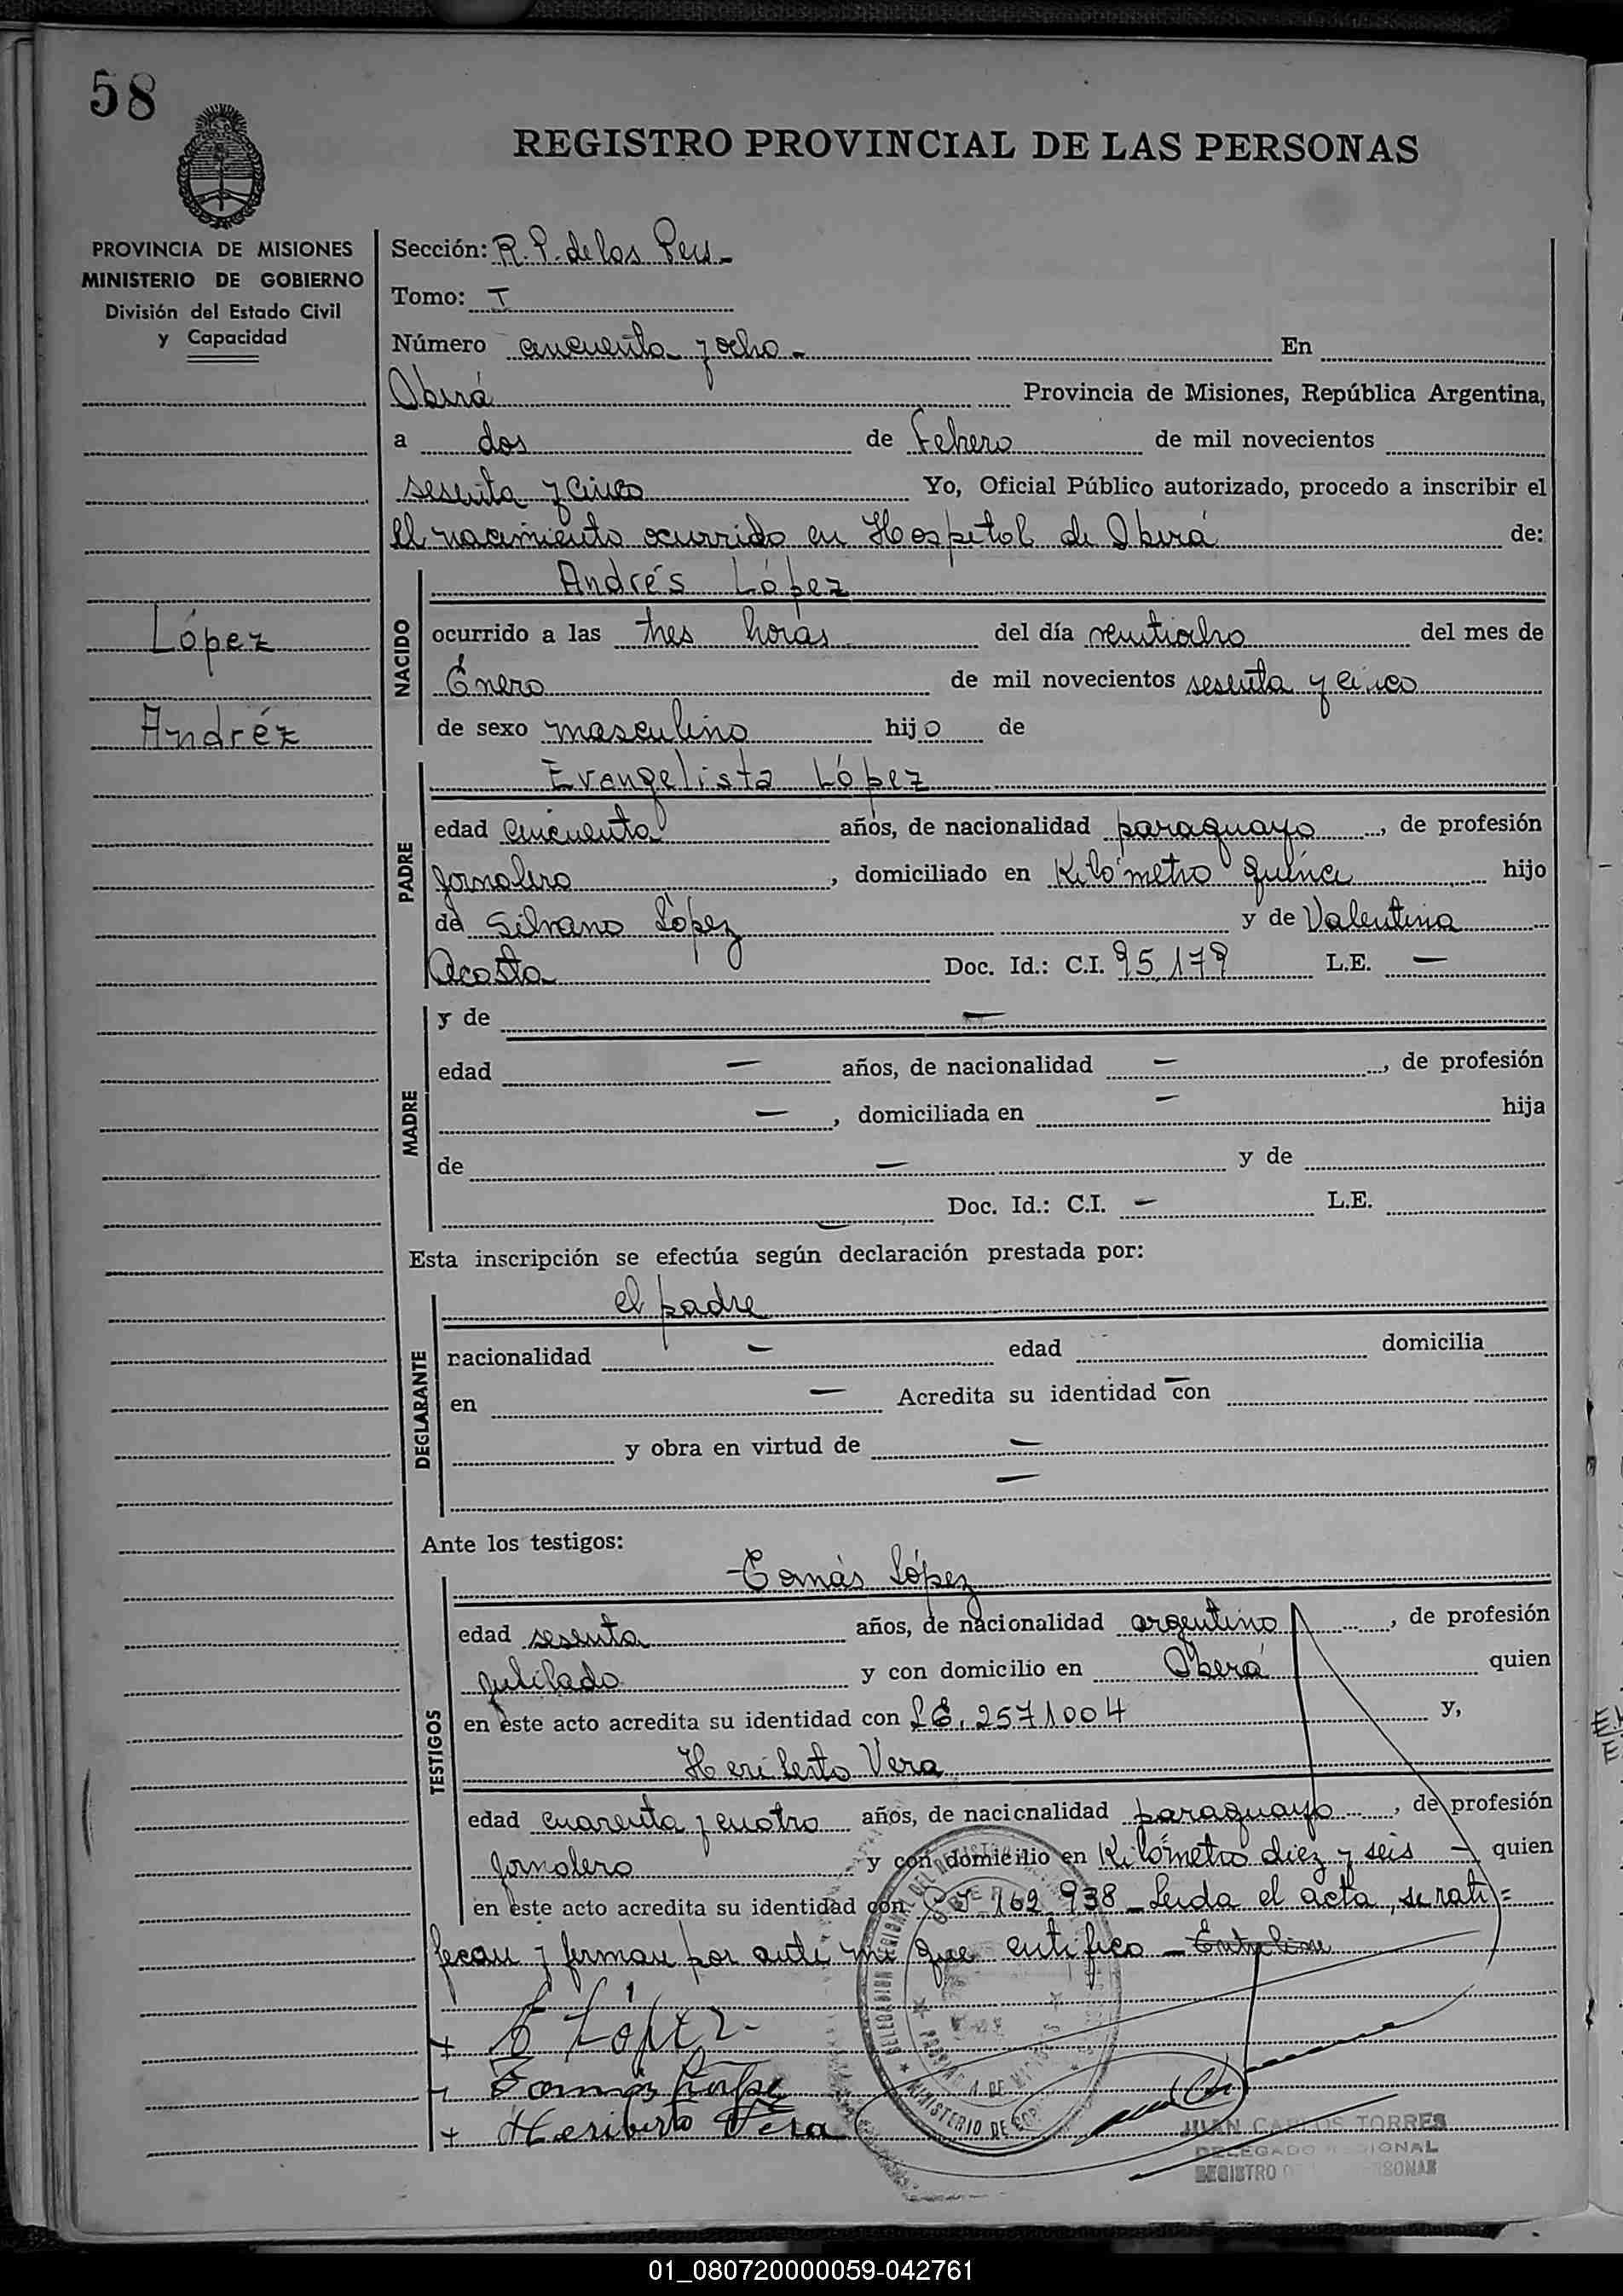 58
REGISTRO PROVINCIAL DE LAS PERSONAS
PROVINCIA DE MISIONES
MINISTERIO DE GOBIERNO
División del Estado Civil
y Capacidad
López
Andréz
Sección: R. P. de las Pers.
Tomo: I
Número cincuenta y ocho. En
Oberá Provincia de Misiones, República Argentina,
a dos de Febrero de mil novecientos
sesenta y cinco Yo, Oficial Público autorizado, procedo a inscribir el
el nacimiento ocurrido en Hospital de Oberá de:
NACIDO
Andrés López
ocurrido a las tres horas del día veintiocho del mes de
Enero de mil novecientos sesenta y cinco
de sexo masculino hijo de
PADRE
Evangelista López
edad cincuenta años, de nacionalidad paraguayo, de profesión
jornalero, domiciliado en Kilómetro quince hijo
de Silvano López y de Valentina
Acosta Doc. Id.: C.I. 95.179 L.E. —
MADRE
y de —
edad — años, de nacionalidad —, de profesión
—, domiciliada en — hija
de — y de
— Doc. Id.: C.I. — L.E.
Esta inscripción se efectúa según declaración prestada por:
DEGLARANTE
el padre
nacionalidad — edad domicilia
en — Acredita su identidad con —
y obra en virtud de —
—
Ante los testigos:
TESTIGOS
Tomás López
edad sesenta años, de nacionalidad argentino, de profesión
jubilado y con domicilio en Oberá quien
en este acto acredita su identidad con L.E. 2571004 y,
Heriberto Vera
edad cuarenta y cuatro años, de nacionalidad paraguayo, de profesión
jornalero y con domicilio en Kilómetro diez y seis — quien
en este acto acredita su identidad con C.I. 162.938 — Leida el acta, se rati=
fican y firman por ante mi que certifico —
+ E López
Tomás López
+ Heriberto Vera
DELEGACION REGIONAL DEL REGISTRO
PROVINCIA DE MISIONES
MINISTERIO DE GOB
JUAN CARLOS TORRES
DELEGADO REGIONAL
REGISTRO PERSONAS
01_080720000059-042761